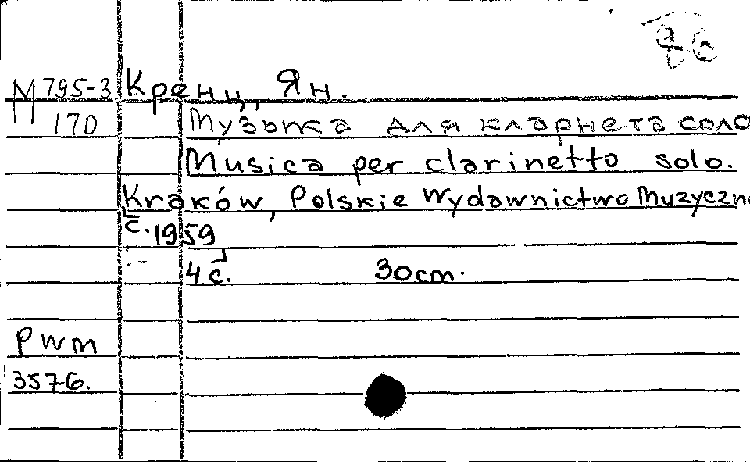 86
М 795-3 Кренц, Ян.
170 Музыка для кларнета соло
Musica per clarinetto solo.
Kraków, Polskie Wydawnictwo Muzyczne
c. 1959
4 с. 30cm.
PWM
3576.